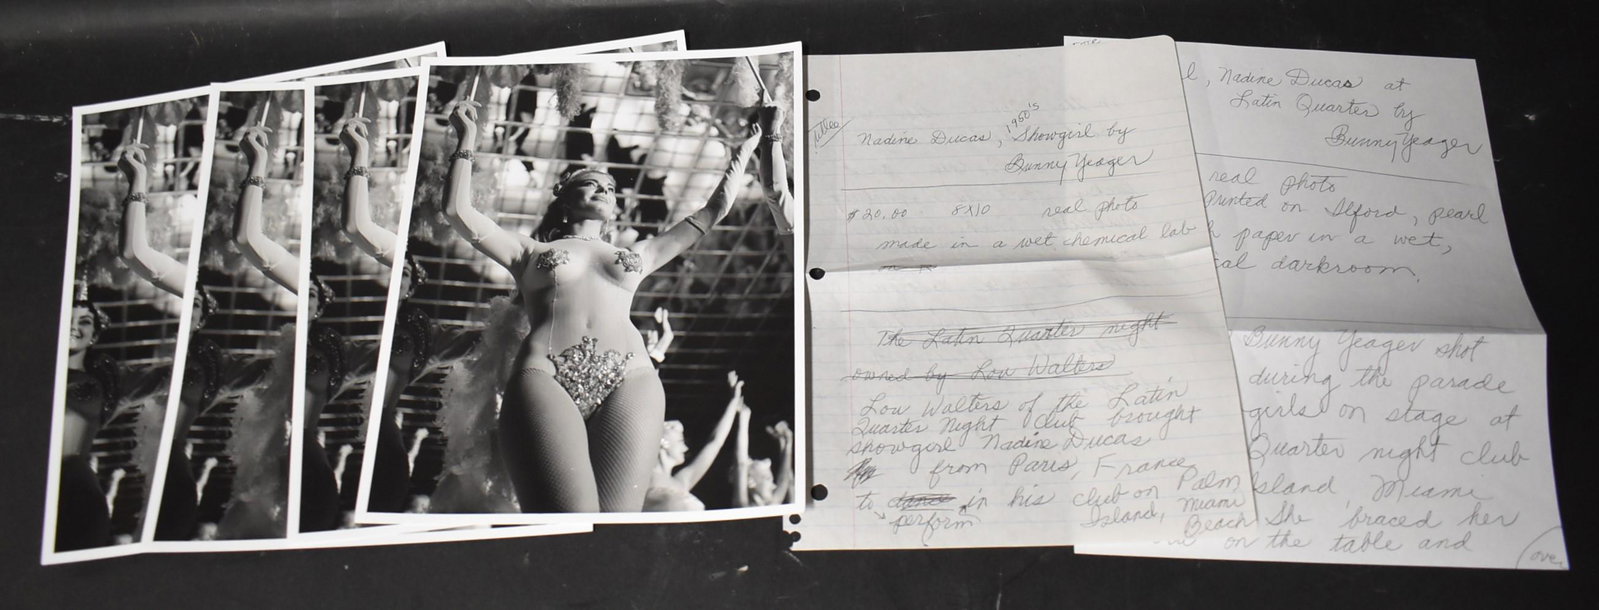 Nadine Ducas, 1950's Showgirl by
Bunny Yeager
$20.00 8x10 real photo
made in a wet chemical lab
The Latin Quarter night
owned by Lou Walters
Lou Walters of the Latin
Quarter Night Club brought
showgirl Nadine Ducas
from Paris, France
to dance in his club on Palm
perform Island, Miami
Beach
l, Nadine Ducas at
Latin Quarter by
Bunny Yeager
real photo
Printed on Ilford, pearl
h paper in a wet,
ial darkroom.
Bunny Yeager shot
during the parade
girls on stage at
Quarter night club
Island, Miami
She braced her
on the table and
over